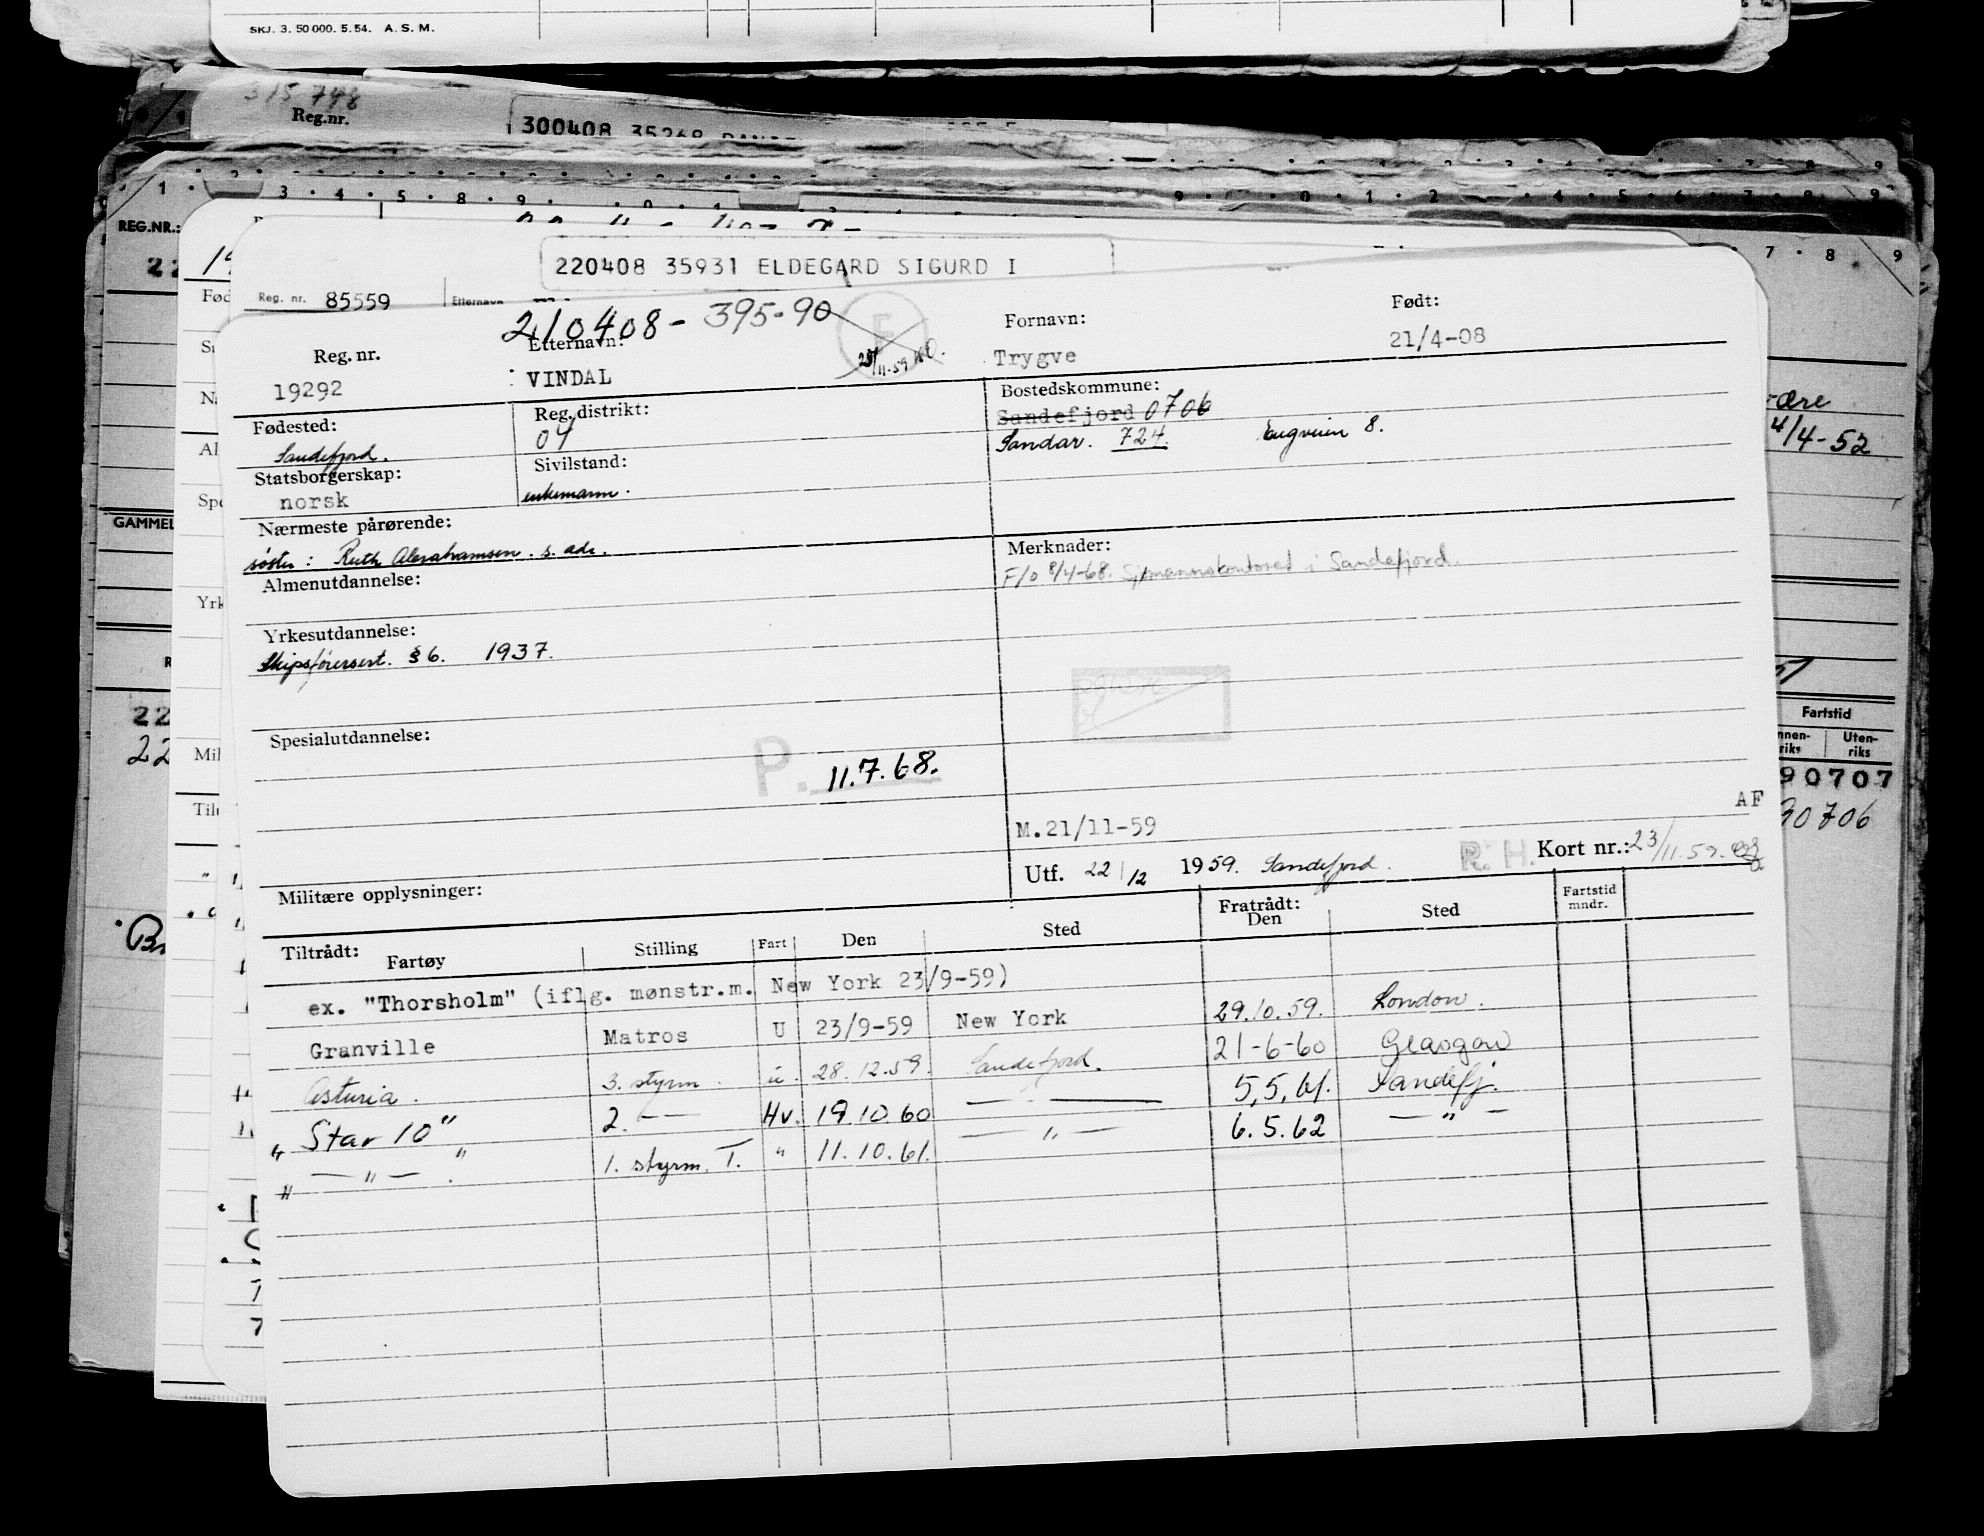 SKJ. 3. 50 000. 5. 54. A. S. M.
315 748
Reg.nr.
300408 35268
1 2 3 4 5 8 9 0 1 2 4 5 6 7 8 9
REG.NR.:
7 8 9
220408 35931 ELDEGARD SIGURD I
Reg. nr. 85559 Etternavn
210408 - 395-90
Reg. nr. Etternavn: Fornavn: Født:
19292 VINDAL Trygve 21/4-08
Fødested: Reg. distrikt: Bostedskommune:
Sandefjord. 04 Sandefjord 0706
Sandar. 724. Engveien 8.
Statsborgerskap: Sivilstand:
norsk enkemann.
Nærmeste pårørende:
søster: Ruth Abrahamsen. s. adr.
Merknader:
F/o 8/4-68. Sjømannskontoret i Sandefjord.
Almenutdannelse:
Yrkesutdannelse:
Skipsførersert. § 6. 1937.
Spesialutdannelse:
P. 11.7.68.
AF
M.21/11-59
Utf. 22/12 1959. Sandefjord. R. H. Kort nr.: 23/11.59.
Militære opplysninger:
Tiltrådt: Fratrådt:
Fartøy Stilling Fart Den Sted Den Sted Fartstid mndr.
ex. "Thorsholm" (iflg. mønstr.m. New York 23/9-59)
Granville Matros U 23/9-59 New York 29.10.59. London.
Asturia. 3. styrm. u. 28.12.59. Sandefjord. 21-6-60 Glasgow
" Star 10" 2. — — Hv. 19.10.60 — — 5,5,61. Sandefj.
" — " — " 1. styrm. T. " 11.10.61. — " — 6.5.62 — " —
GAMMEL
4/4-52
Fartstid
Innen-riks Uten-riks
90707
30706